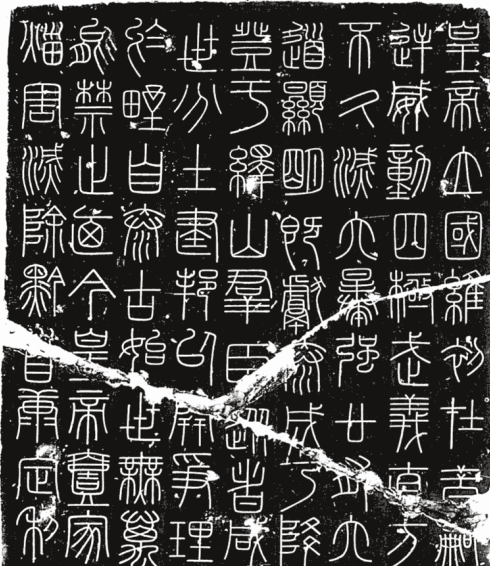 皇帝立國維初在昔嗣
逆威動四極武義直方
不久滅六暴強廿有六
道顯明既獻泰成乃降
登于繹山群臣從者咸
世分土建邦以開爭理
於野自泰古始世無萬
能禁止迺今皇帝壹家
災害滅除黔首康定利